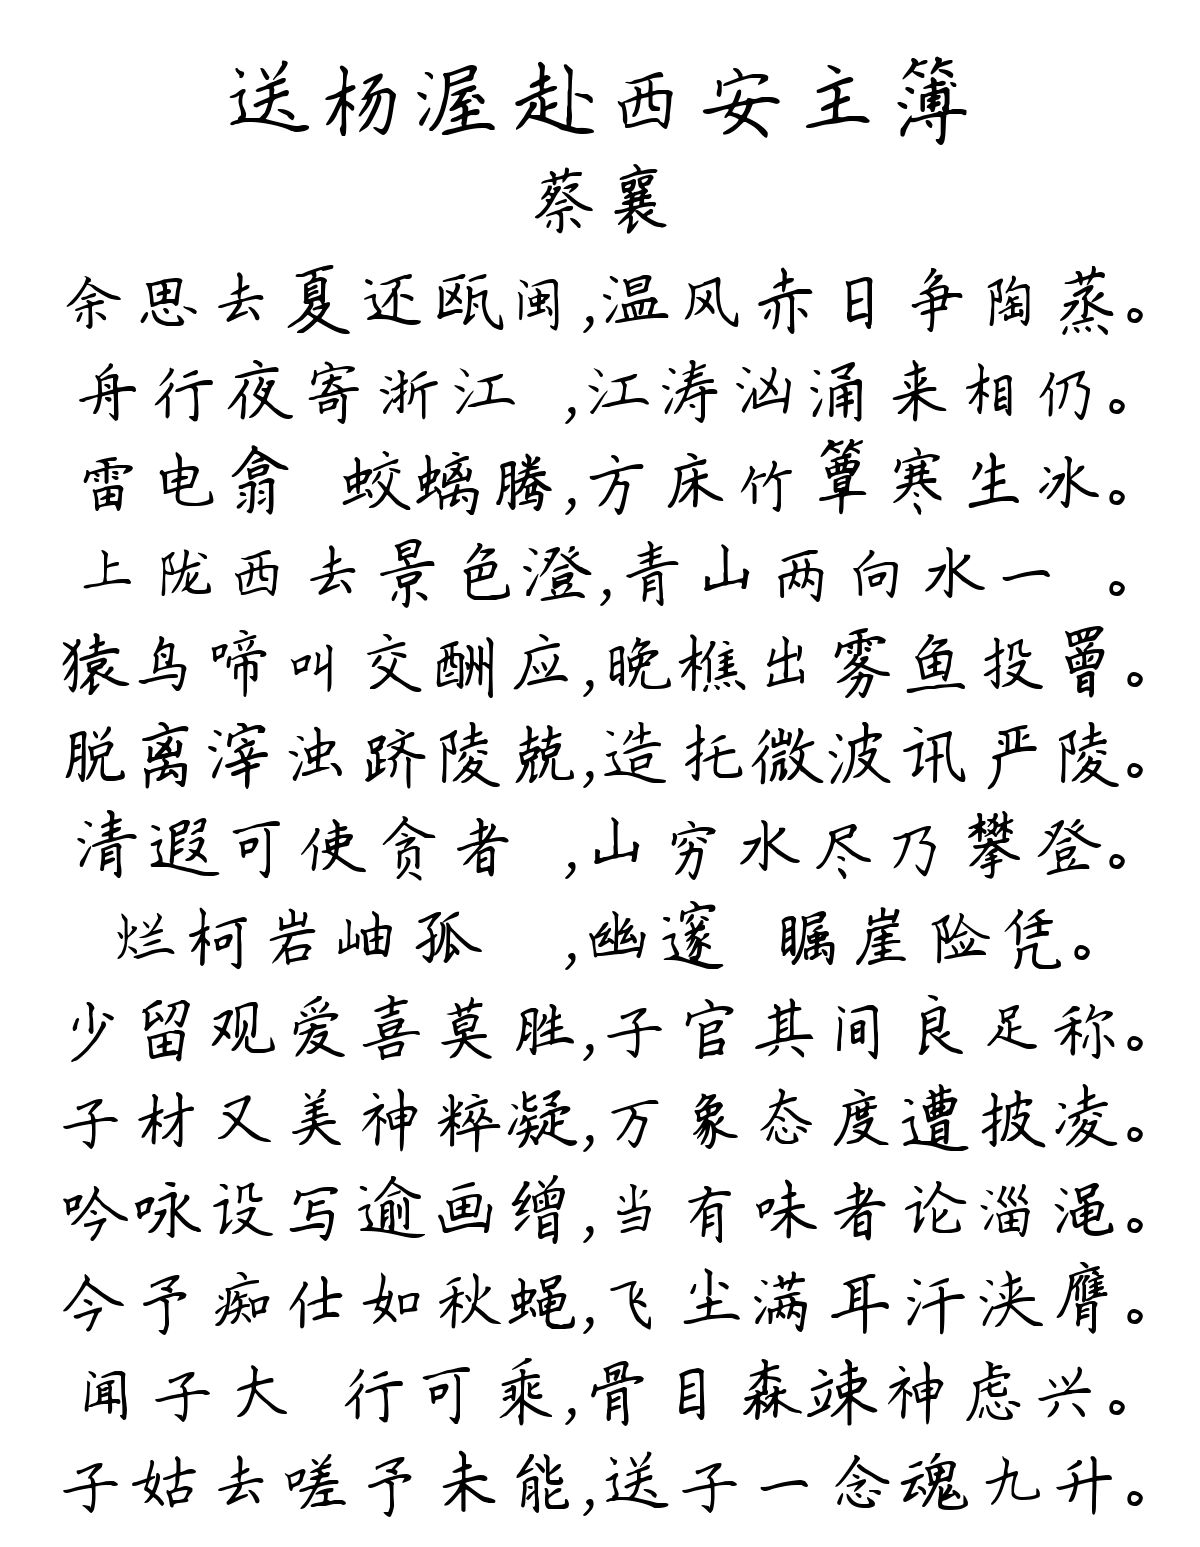 送杨渥赴西安主簿
蔡襄
余思去夏还瓯闽,温风赤日争陶蒸。
舟行夜寄浙江 ,江涛汹涌来相仍。
雷电翕 蛟螭腾,方床竹簟寒生冰。
上陇西去景色澄,青山两向水一 。
猿鸟啼叫交酬应,晚樵出雾鱼投罾。
脱离滓浊跻陵兢,造托微波讯严陵。
清遐可使贪者 ,山穷水尽乃攀登。
烂柯岩岫孤 ,幽邃 瞩崖险凭。
少留观爱喜莫胜,子官其间良足称。
子材又美神粹凝,万象态度遭披凌。
吟咏设写逾画缯,当有味者论淄渑。
今予痴仕如秋蝇,飞尘满耳汗浃膺。
闻子大 行可乘,骨目森竦神虑兴。
子姑去嗟予未能,送子一念魂九升。